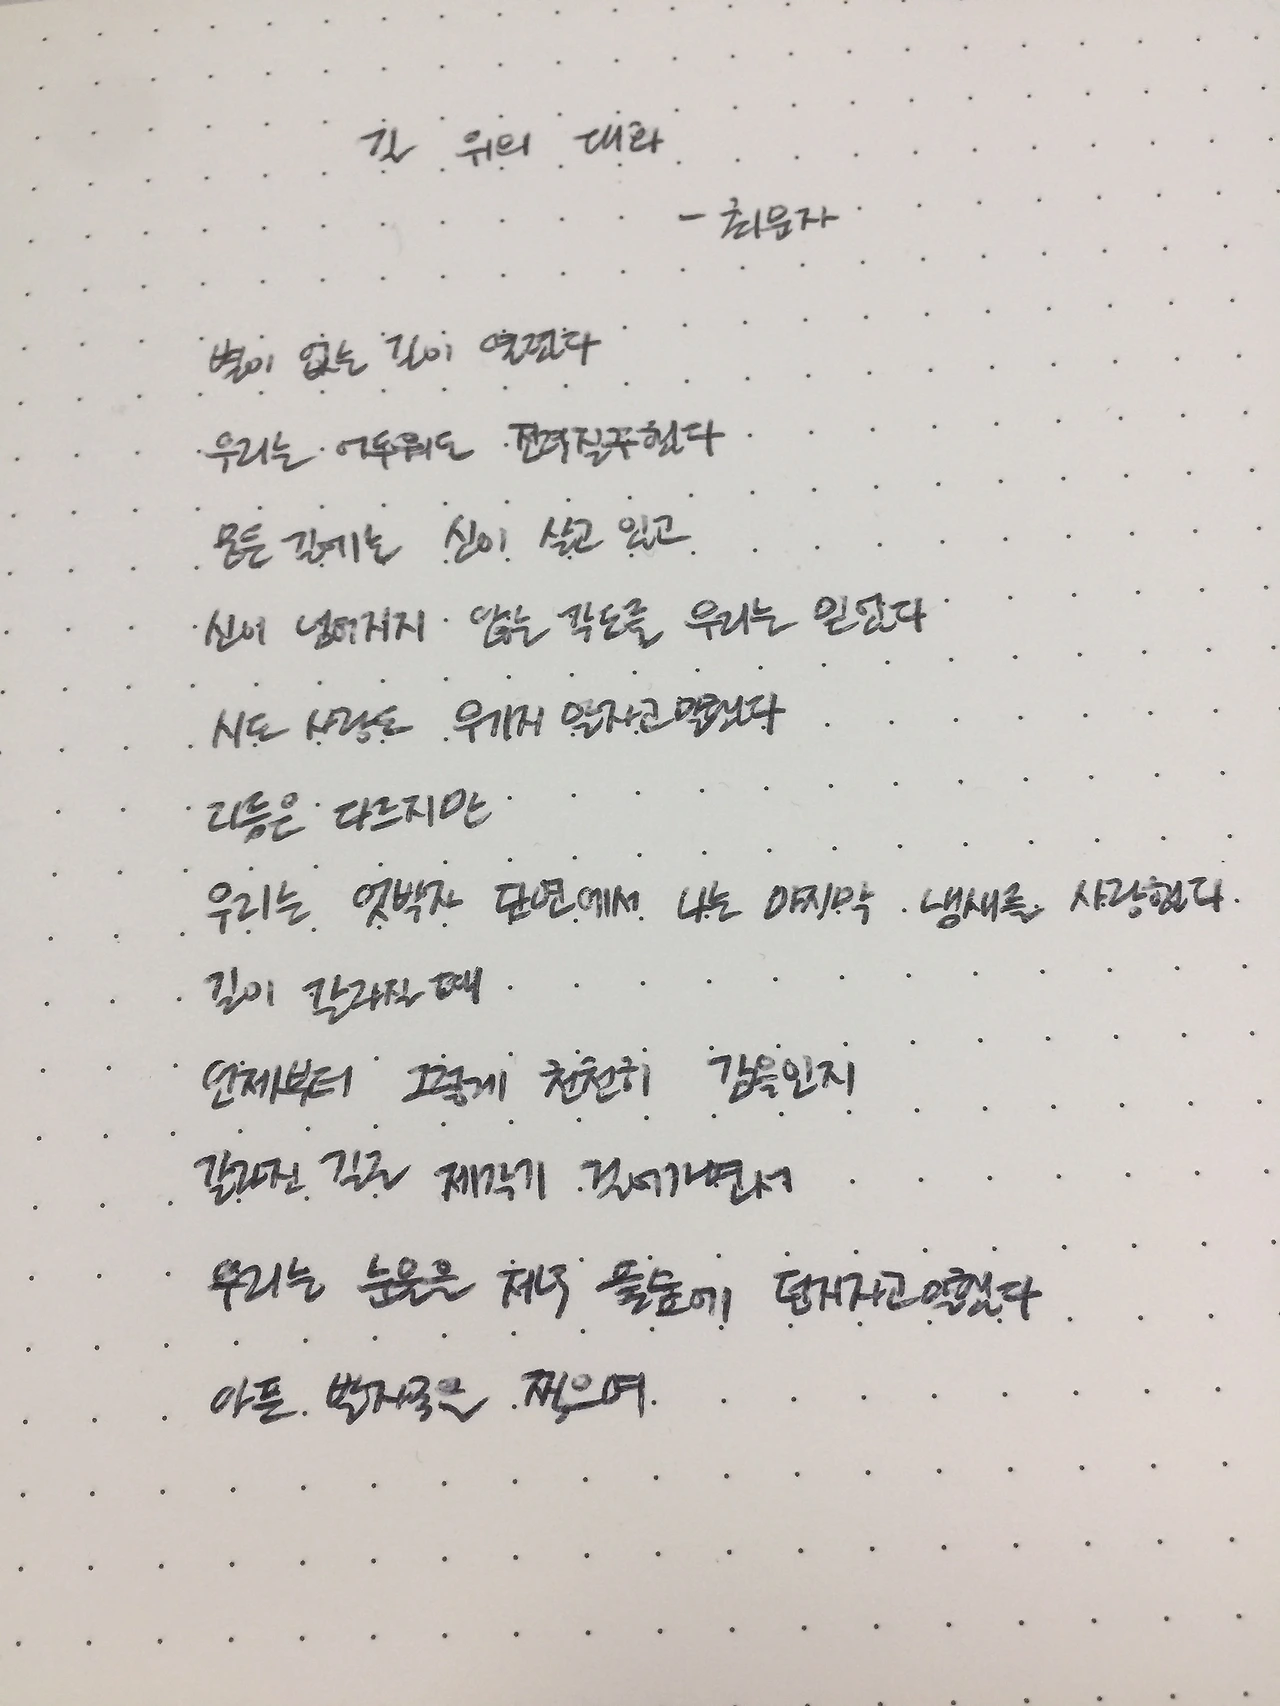 길 위의 대화
- 최문자
별이 없는 길이 열렸다
우리는 어두워도 전력질주했다
모든 길에는 신이 살고 있고
신이 넘어지지 않는 각도를 우리는 믿었다
시도 사랑도 우기지 말자고 말했다
리듬은 다르지만
우리는 엇박자 단면에서 나는 마지막 냄새를 사랑했다
길이 갈라질 때
언제부터 그렇게 천천히 갔을인지
갈라진 길로 제각기 걸어가면서
우리는 눈물은 저녁 풀숲에 던지자고 약했다
아픈 발자국을 찍으며